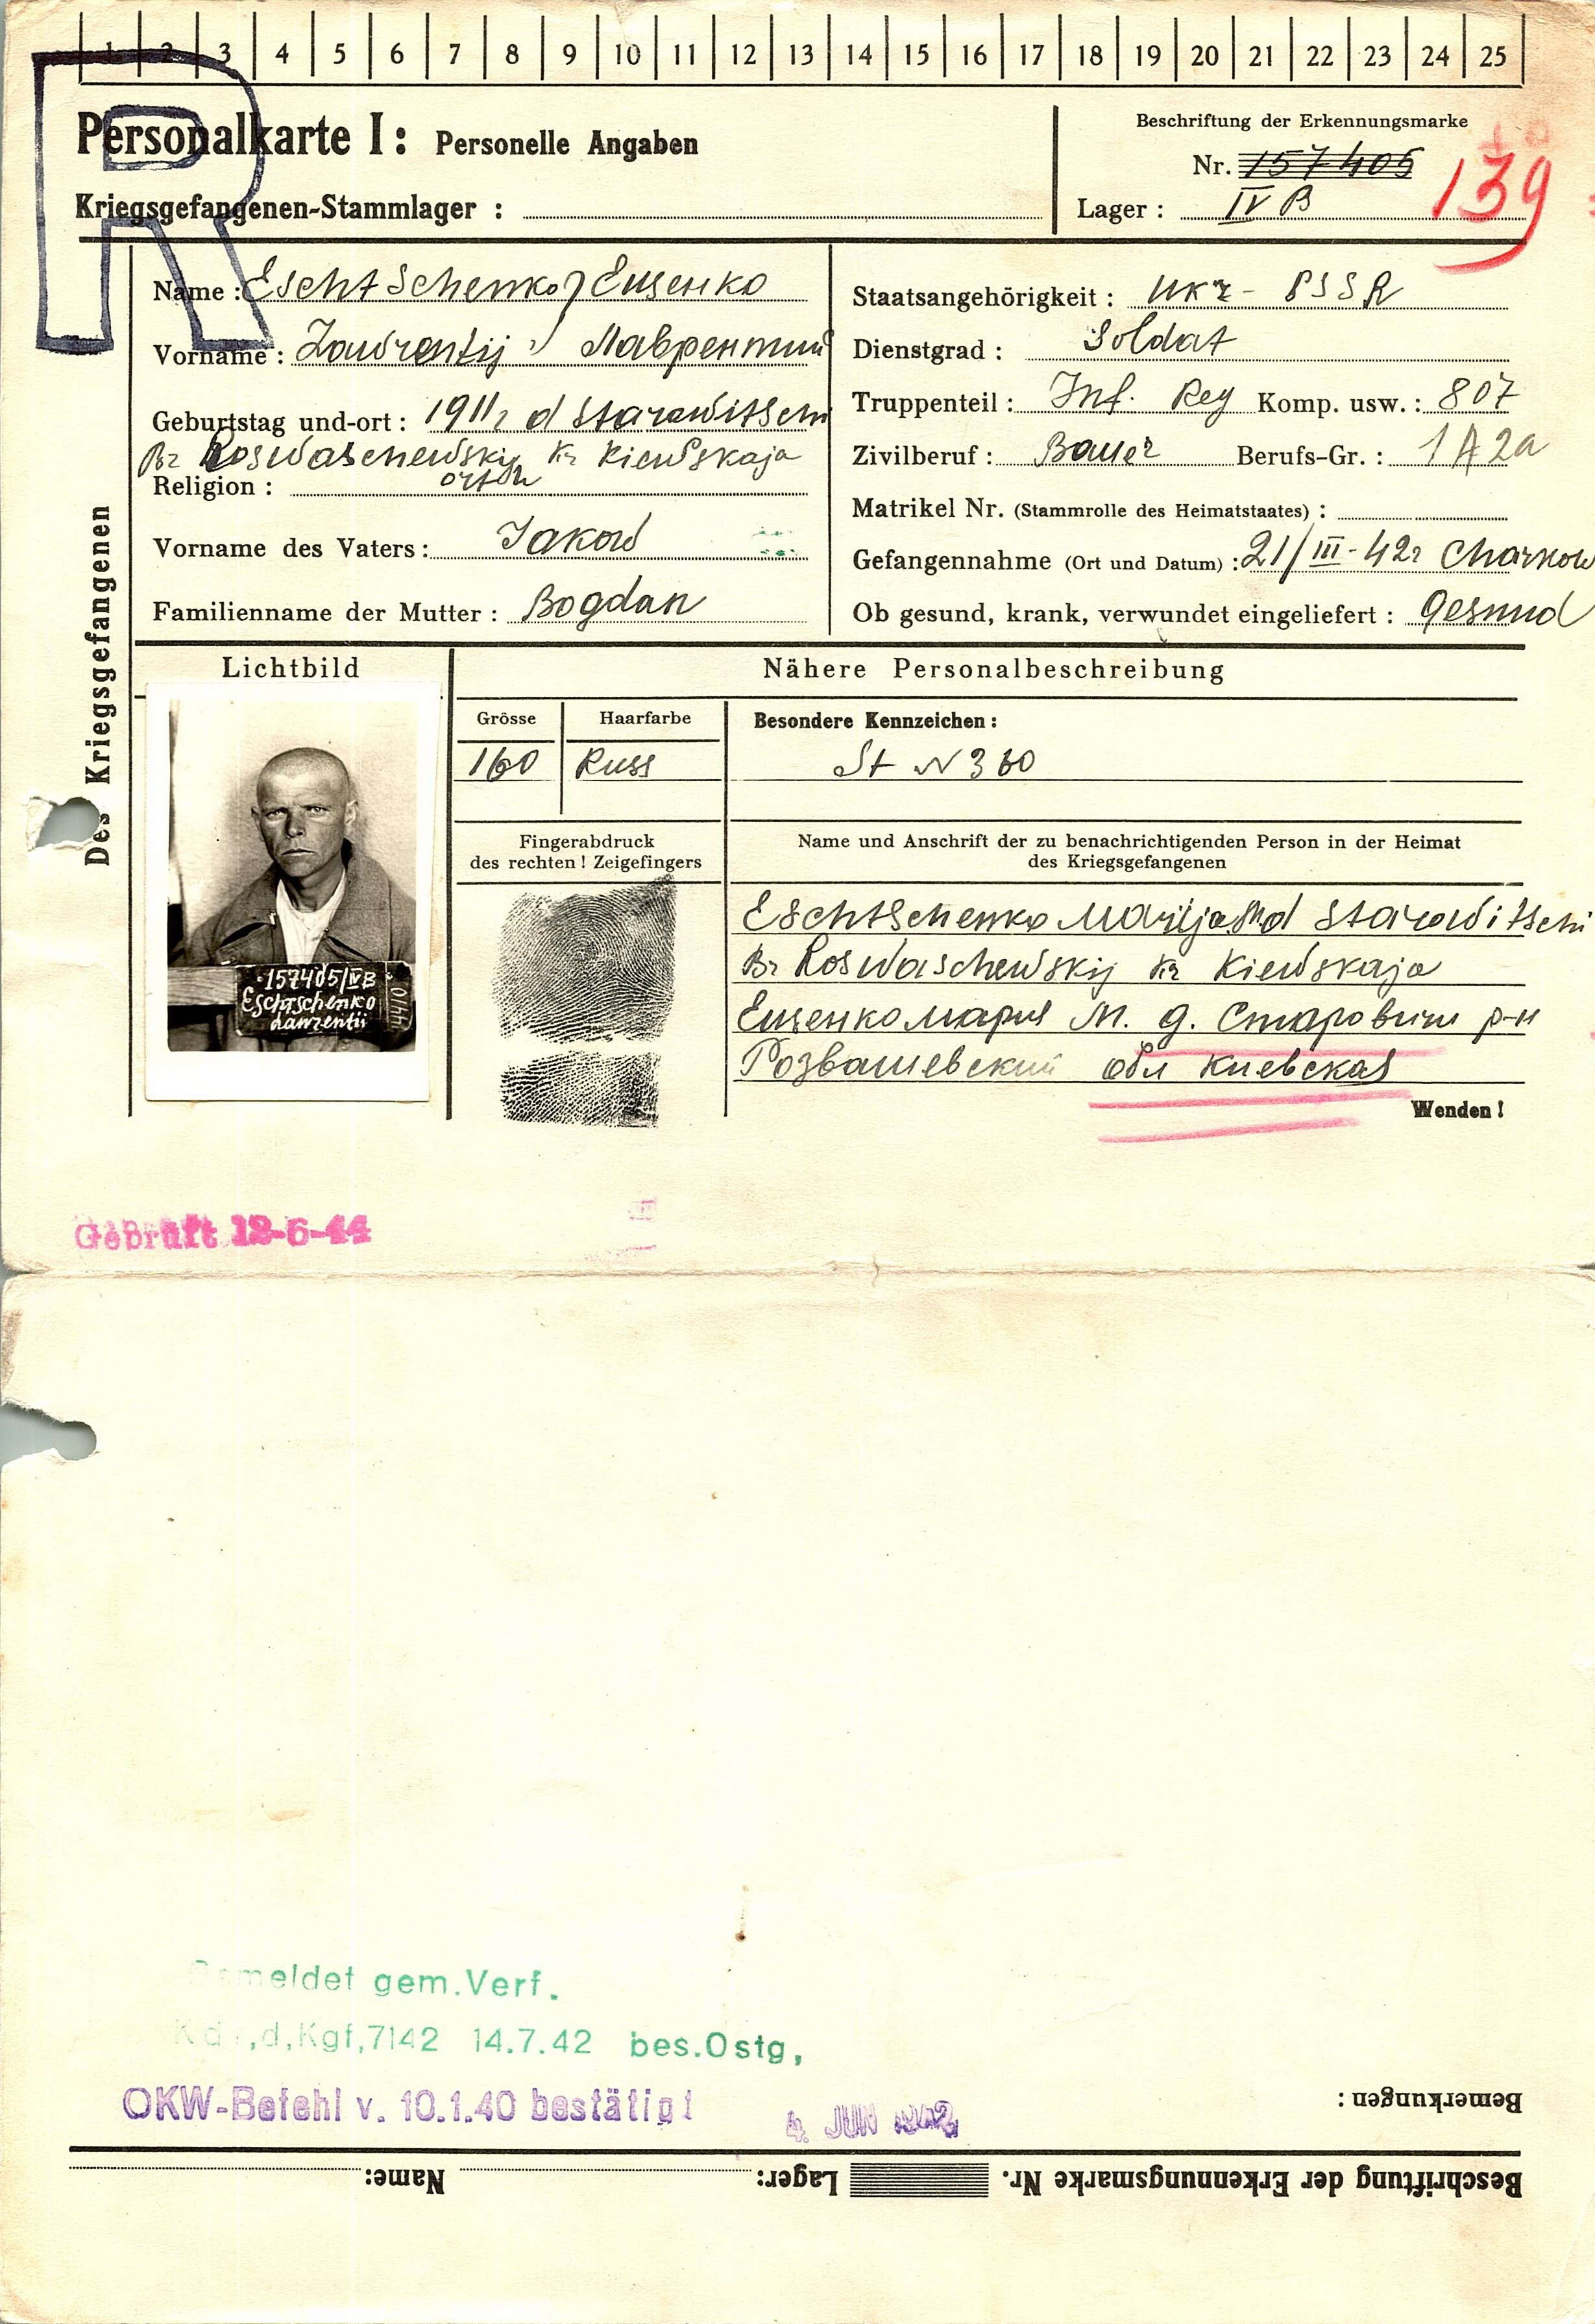 1 2 3 4 5 6 7 8 9 10 11 12 13 14 15 16 17 18 19 20 21 22 23 24 25
R
Personalkarte I: Personelle Angaben
Kriegsgefangenen-Stammlager :
Beschriftung der Erkennungsmarke
Nr. 157405
Lager : IV B
139
Des Kriegsgefangenen
Name : Eschtschenko Ещенко
Vorname : Lawrentij Лаврентий
Geburtstag und-ort : 1911 d Starowitschi
Roswaschewskij Kiewskaja
Religion : orth
Vorname des Vaters : Jakow
Familienname der Mutter : Bogdan
Staatsangehörigkeit : Ukr - SSR
Dienstgrad : Soldat
Truppenteil : Inf. Reg Komp. usw. : 807
Zivilberuf : Bauer Berufs-Gr. : 1 A 2a
Matrikel Nr. (Stammrolle des Heimatstaates) :
Gefangennahme (Ort und Datum) : 21/III-42 Charkow
Ob gesund, krank, verwundet eingeliefert : Gesund
Lichtbild
Nähere Personalbeschreibung
Grösse
Haarfarbe
Besondere Kennzeichen :
160
Russ
St N 360
157405/IVB
Eschtschenko
Lawrentii
Fingerabdruck
des rechten! Zeigefingers
Name und Anschrift der zu benachrichtigenden Person in der Heimat
des Kriegsgefangenen
Eschtschenko Marija d Starowitschi
Roswaschewskij Kiewskaja
Ещенко Мария М. д. Старовичи р-н
Розвашевский обл Киевская
Wenden !
Geprüft 12-6-44
Gemeldet gem.Verf.
Kdr,d,Kgf,7142 14.7.42 bes.Ostg,
OKW-Befehl v. 10.1.40 bestätigt
4. JUN 1942
Bemerkungen :
Beschriftung der Erkennungsmarke Nr. Lager: Name: